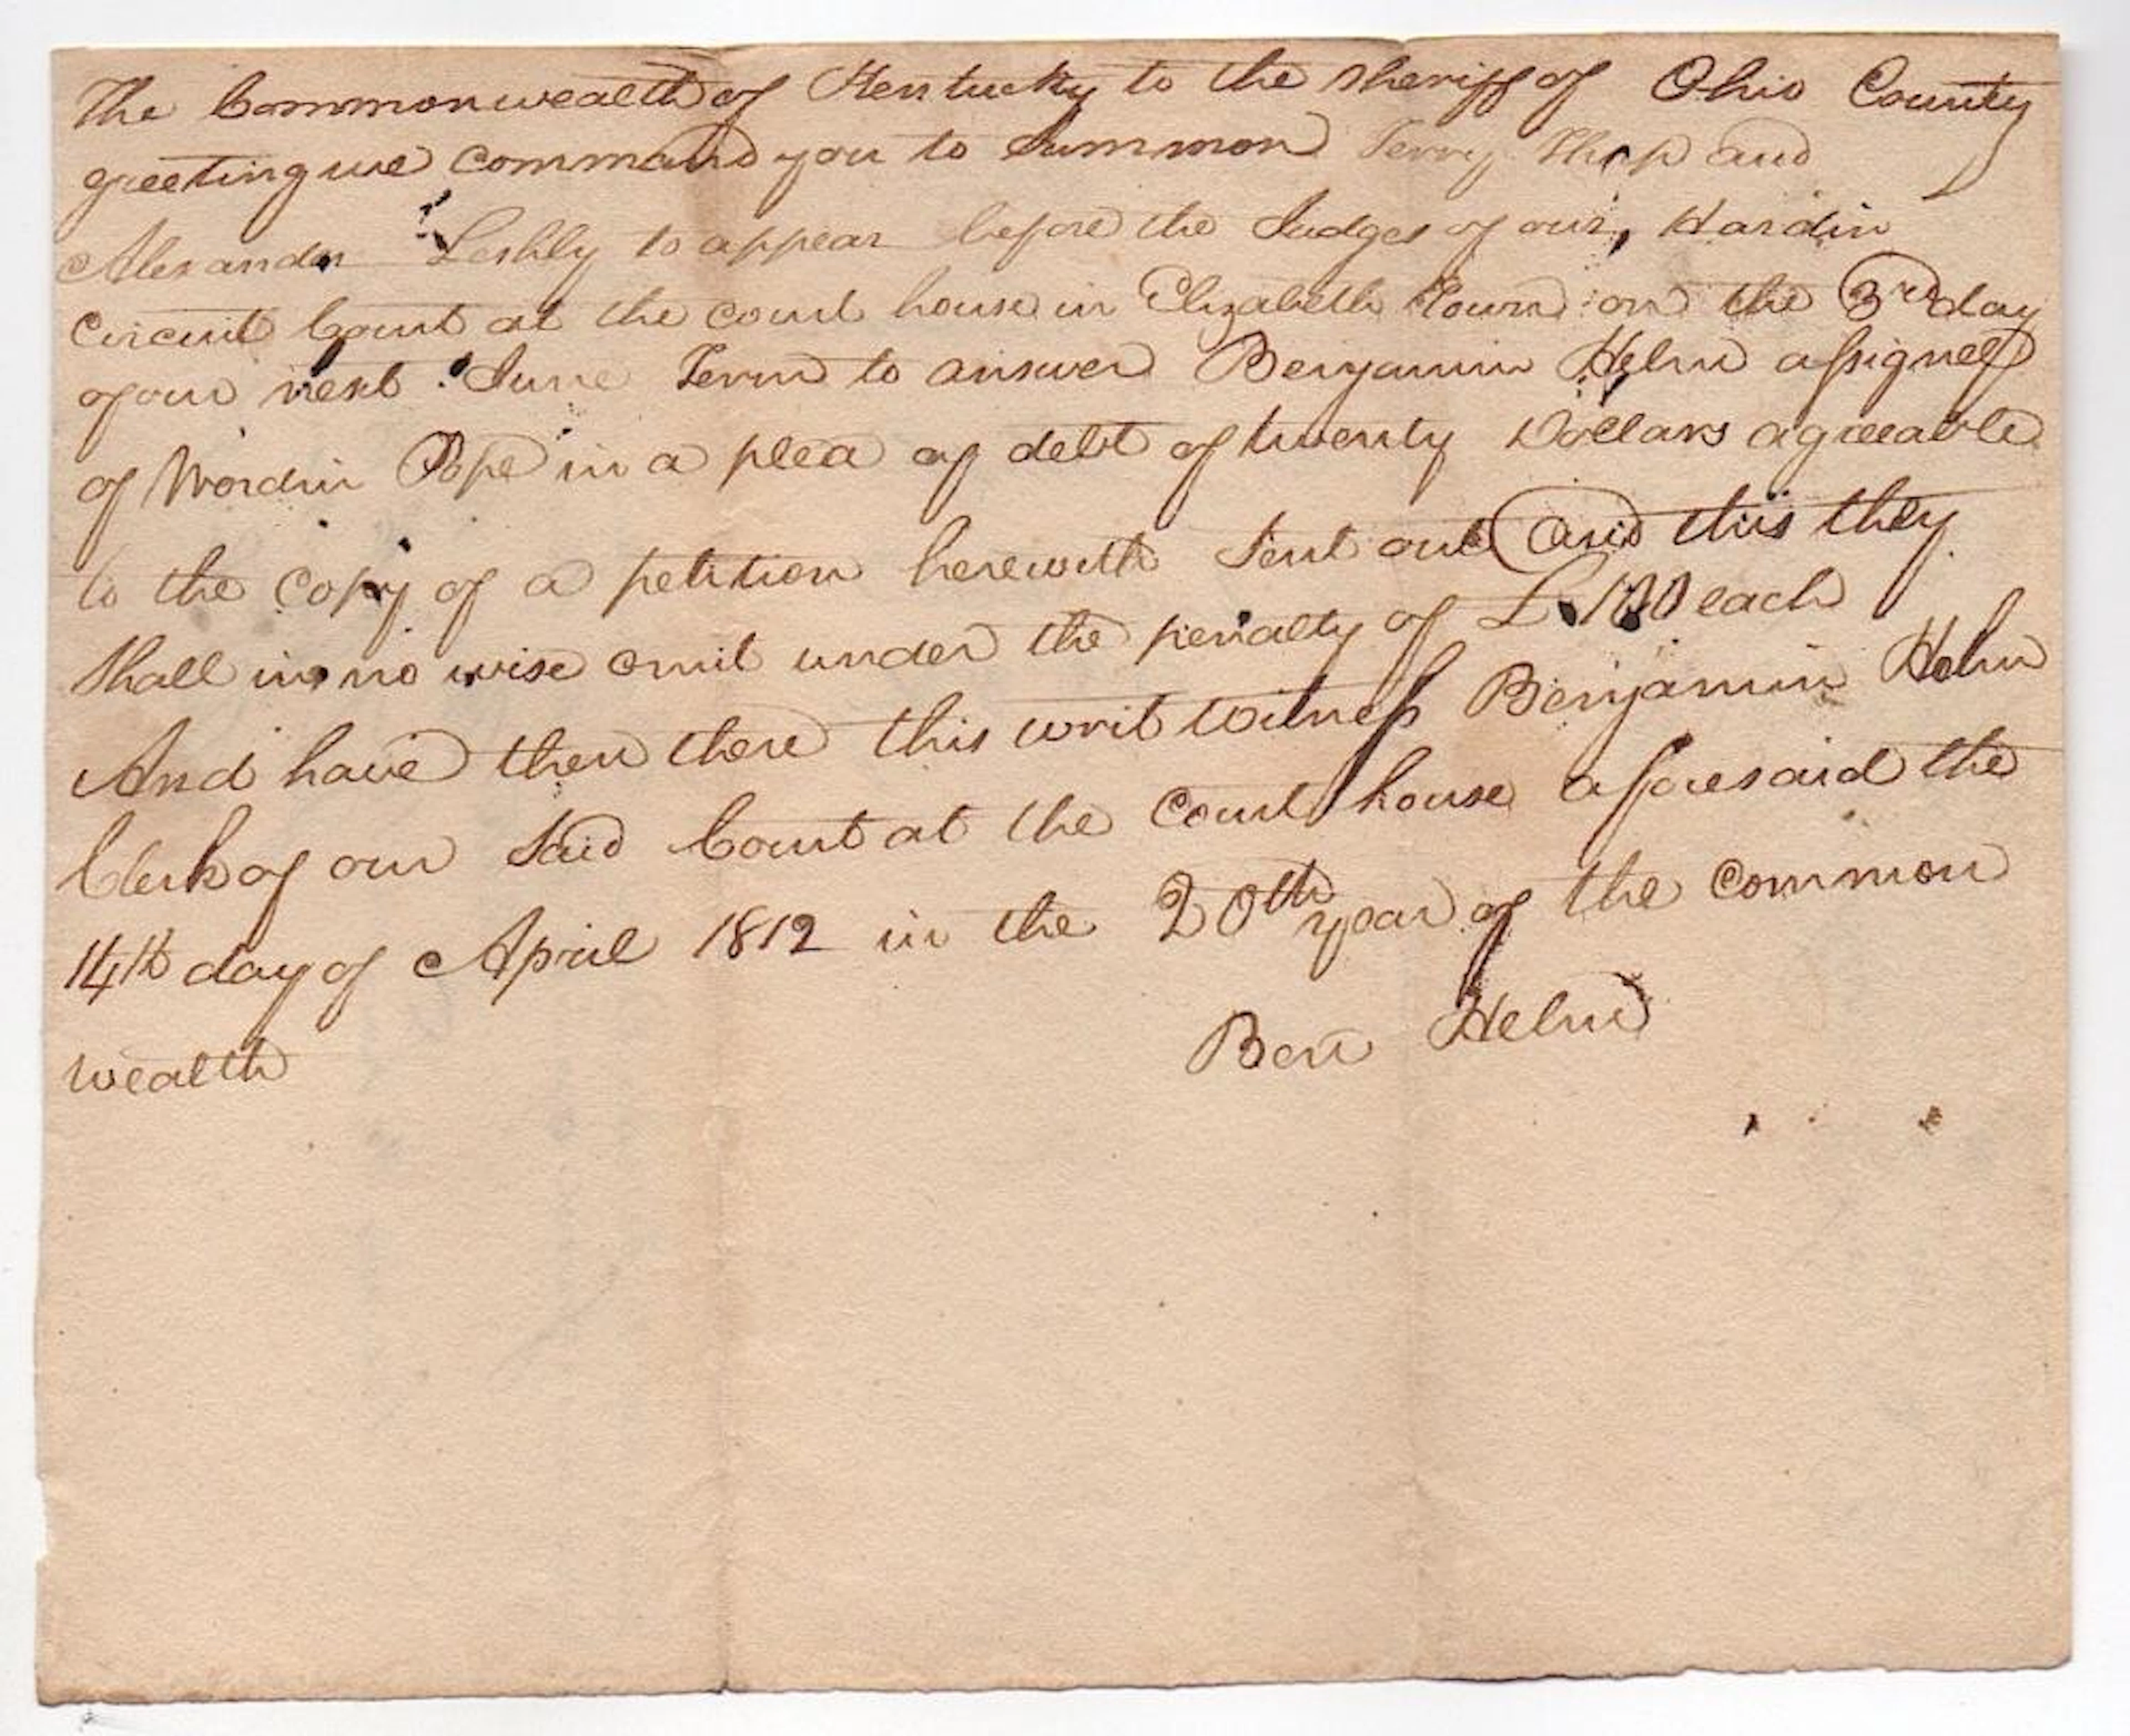 The Commonwealth of Kentucky to the Sheriff of Ohio County
greeting we command you to Summon Terry and
Alexander to appear before the Judges of our Hardin
Circuit Court at the court house in Elizabeth Town on the 3rd day
of our next June Term to answer Benjamin Helm assignee
of Wordin Pope in a plea of debt of twenty Dollars agreeable
to the Copy of a petition herewith Sent out and this they
Shall in no wise omit under the penalty of £ 100 each
And have then there this writ witness Benjamin Helm
Clerk of our Said Court at the Court house aforesaid the
14th day of April 1812 in the 20th year of the Common
wealth
Ben Helm